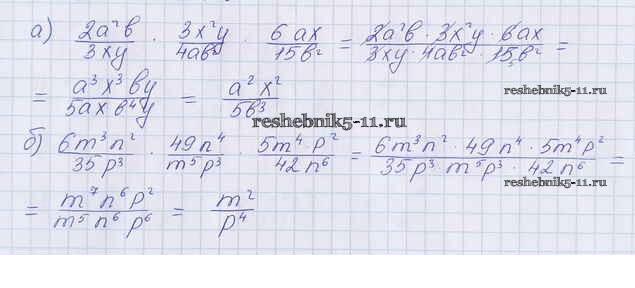 а) 2a²b/3xy · 3x²y/4ab² · 6ax/15b² = 2a²b · 3x²y · 6ax/3xy · 4ab² · 15b² =
= a³x³by/5axb⁴y = a²x²/5b³
reshebnik5-11.ru
reshebnik5-11.ru
б) 6m³n²/35p³ · 49n⁴/m⁵p³ · 5m⁴·p²/42n⁶ = 6m³n² · 49n⁴ · 5m⁴p²/35p³ · m⁵p³ · 42n⁶ =
reshebnik5-11.ru
= m⁷n⁶p²/m⁵n⁶p⁶ = m²/p⁴